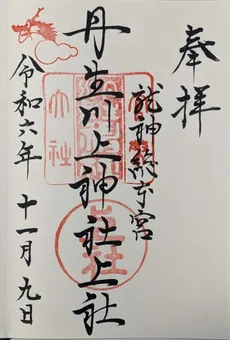 奉拝
龍神総本宮
丹生川上神社上社
令和六年 十一月 九日